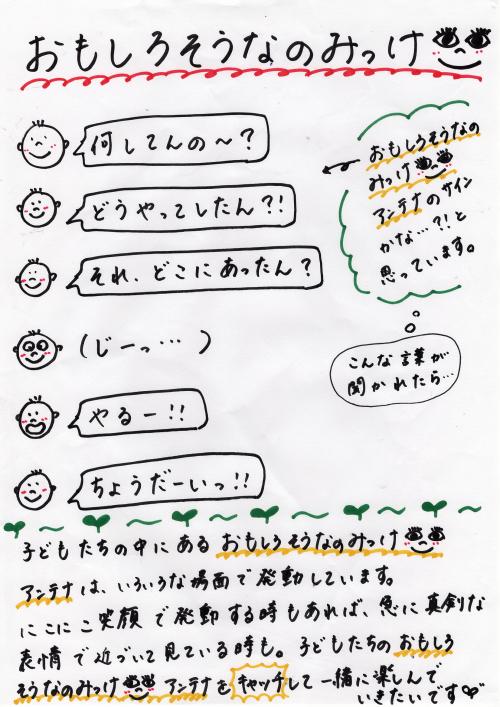 おもしろそうなのみっけ
何してんの～？
どうやってしたん？！
それ、どこにあったん？
（じーっ…　）
やるー！！
ちょうだーいっ！！
おもしろそうなの
みっけ
アンテナのサイン
かな…？！と
思っています。
こんな言葉が
聞かれたら…
子どもたちの中にあるおもしろそうなのみっけ
アンテナは、いろいろな場面で発動しています。
にこにこ笑顔で発動する時もあれば、急に真剣な
表情で近づいて見ている時も。子どもたちのおもしろ
そうなのみっけアンテナをキャッチして一緒に楽しんで
いきたいです